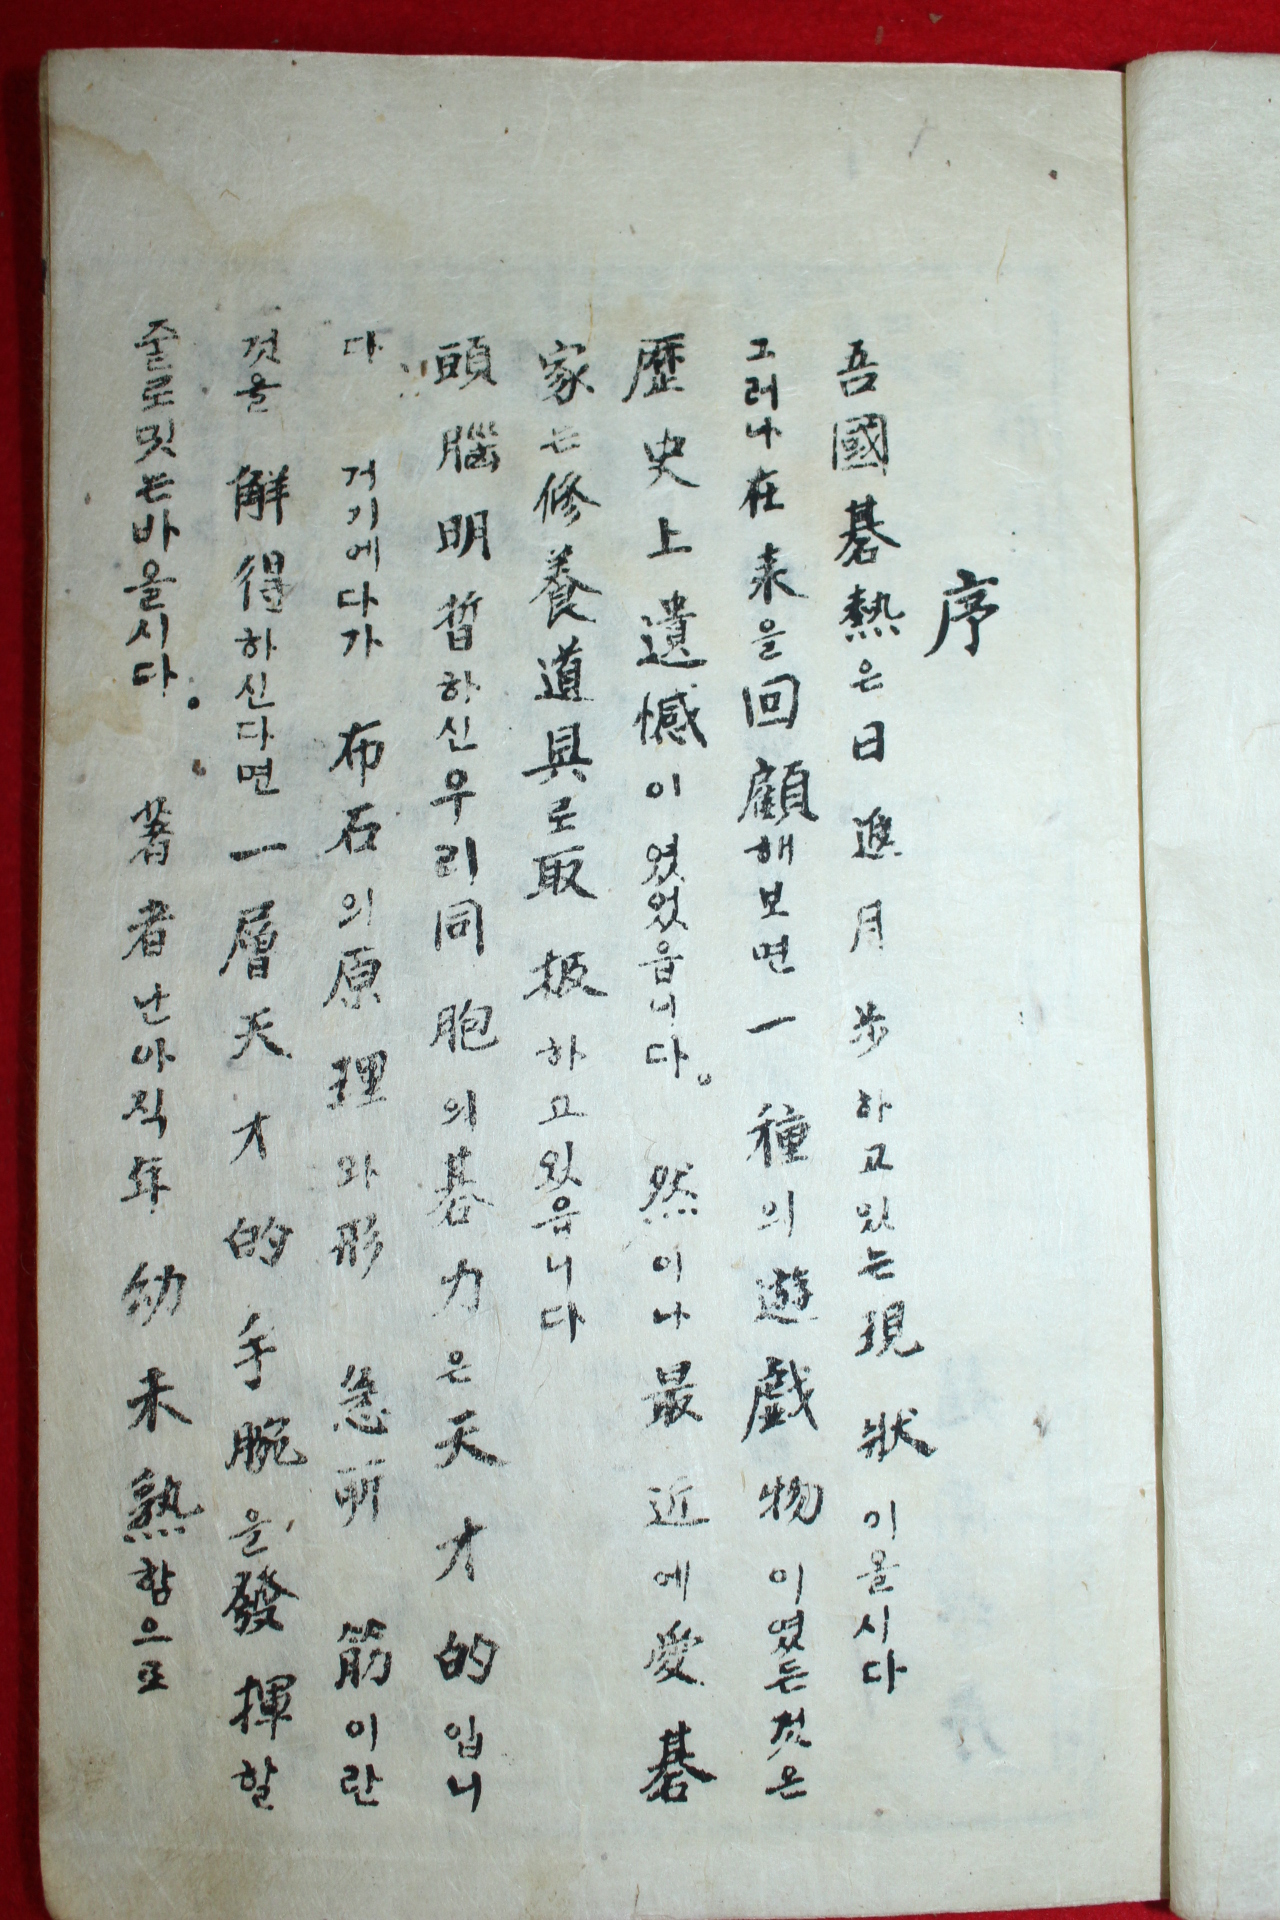 序
吾國碁熱은日進月步하고있는現狀이올시다
그러나在来을回顧해보면一種의遊戲物이였든것은
歷史上遺憾이였었읍니다。然이나最近에愛碁
家는修養道具로取扱하고있읍니다
頭腦明晢하신우리同胞의碁力은天才的입니
다 거기에다가 布石의原理와形 急所 筋이란
것을 解得하신다면一層天才的手腕을發揮할
줄로밋는바올시다。 著者난아직年幼未熟함으로